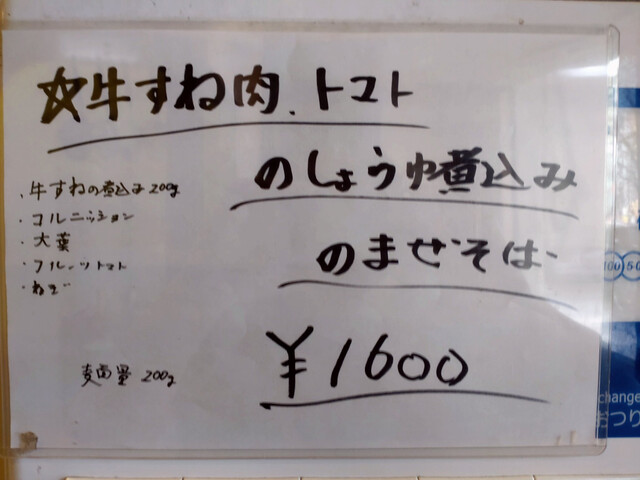 ☆牛すね肉、トマト
のしょうゆ煮込み
のまぜそば
¥1600
・牛すねの煮込み200g
・コルニッション
・大葉
・フルーツトマト
・ねぎ
麺量 200g
100 50
change
おつり